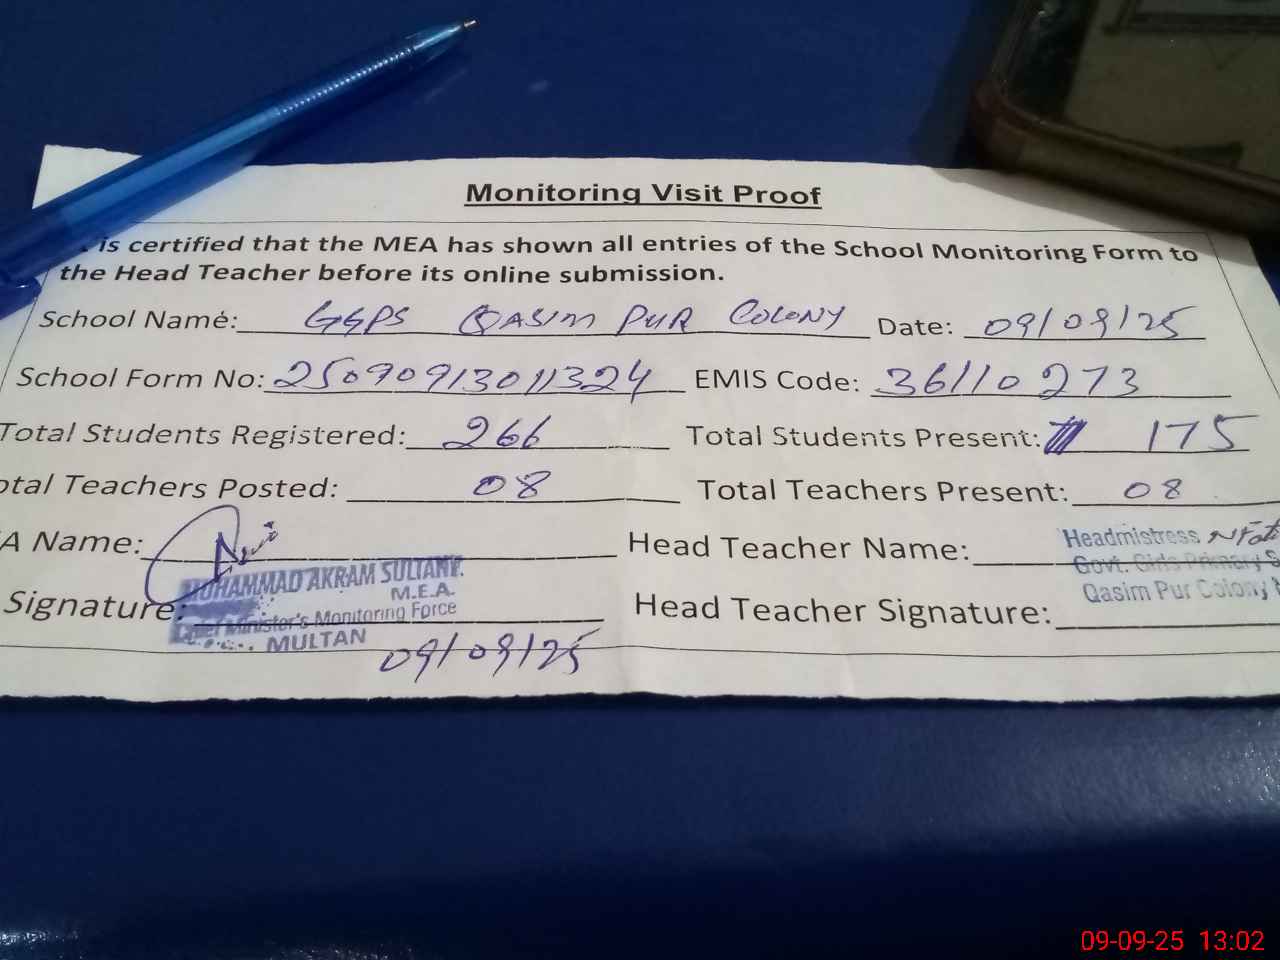 Monitoring Visit Proof
is certified that the MEA has shown all entries of the School Monitoring Form to
the Head Teacher before its online submission.
School Name: GGPS QASIM PUR COLONY Date: 09/09/25
School Form No: 25090913011324 EMIS Code: 36110273
Total Students Registered: 266 Total Students Present: 175
otal Teachers Posted: 08 Total Teachers Present: 08
A Name: Head Teacher Name:
Headmistress
Govt. Girls Primary S
Qasim Pur Colony
MUHAMMAD AKRAM SULTANY.
M.E.A.
Signature: Head Teacher Signature:
Chief Minister's Monitoring Force
MULTAN
09/09/25
09-09-25 13:02